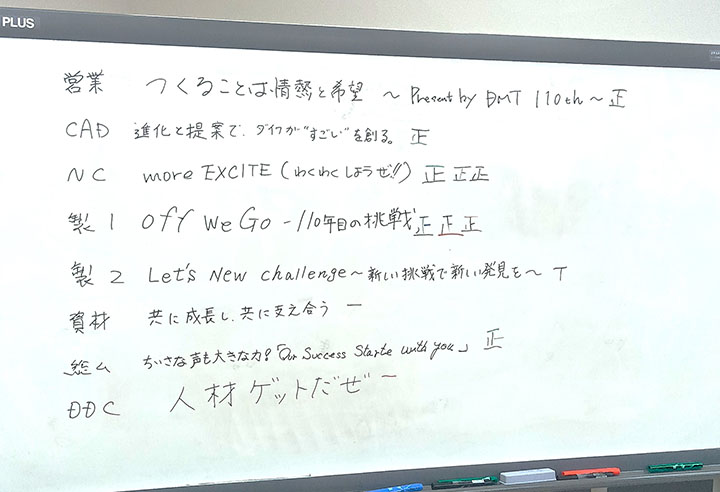 PLUS
営業 つくることは情熱と希望 ~ Present by DMT 110th ~ 正
CAD 進化と提案で、ダイワが"すごい"を創る。 正
NC more EXCITE (わくわくしようぜ!!) 正 正 正
製1 Off We Go - 110年目の挑戦 正 正 正
製2 Let's New challenge ~ 新しい挑戦で新しい発見を ~ T
資材 共に成長し、共に支え合う 一
総ム ちいさな声も大きな力!「Our Success Starts with you」 正
DDC 人材ゲットだぜ 一